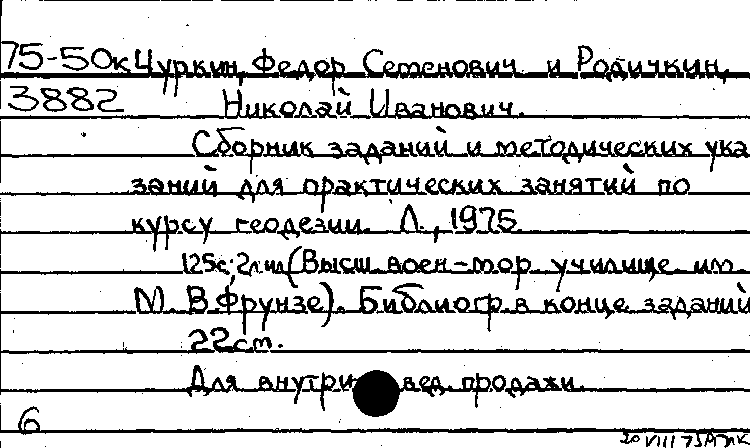 75-50к Чуркин, Федор Семенович и Родичкин,
3882 Николай Иванович.
Сборник заданий и методических ука
заний для практических занятий по
курсу геодезии. Л., 1975.
125с; 2л.ил (Высш. воен-мор. училище им.
М. В. Фрунзе). Библиогр. в конце заданий
22 см.
Для внутри вед. продажи.
6
20 VIII 75